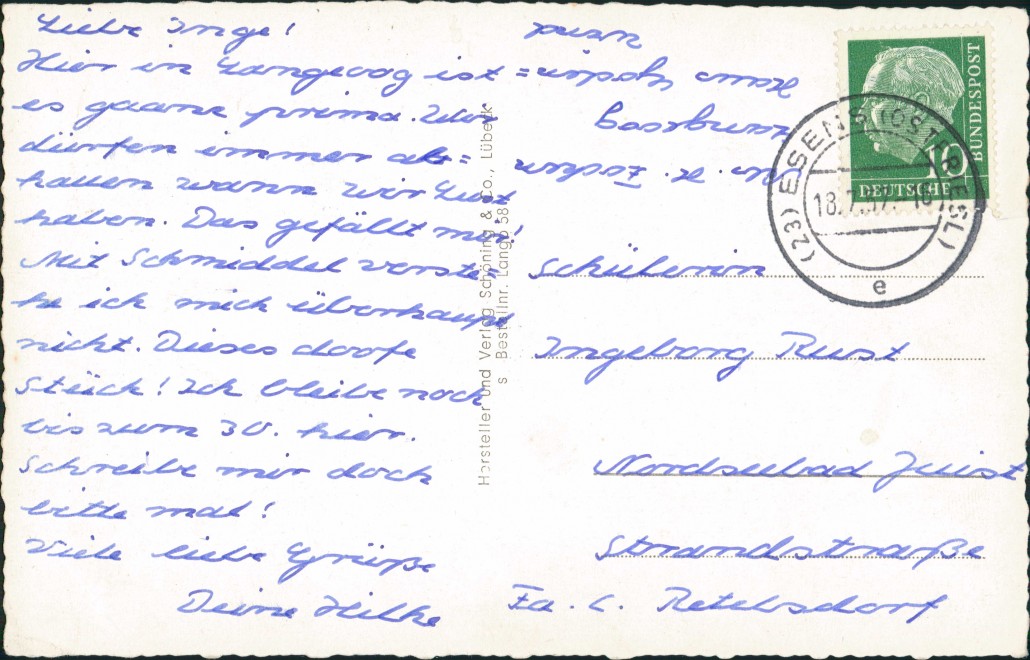 Liebe Inge!
Hier in Langeoog ist
es gaanz prima. Wir
dürfen immer ab=
hauen wann wir Lust
haben. Das gefällt mir!
Mit Schmiddel verste=
he ich mich überhaupt
nicht. Dieses doofe
Stück! Ich bleibe noch
bis zum 30. hier.
Schreibe mir doch
bitte mal!
Viele liebe Grüße
Deine Hilke
Hersteller und Verlag Schöning & Co., Lübeck
s Bestellnr. Lango 58
DEUTSCHE
BUNDESPOST
(23) ESENS (OSTFRIESL)
18.7.57.-16
e
Schülerin
Ingeborg Rust
Nordseebad Juist
Strandstraße
Fa. C. Retelsdorf